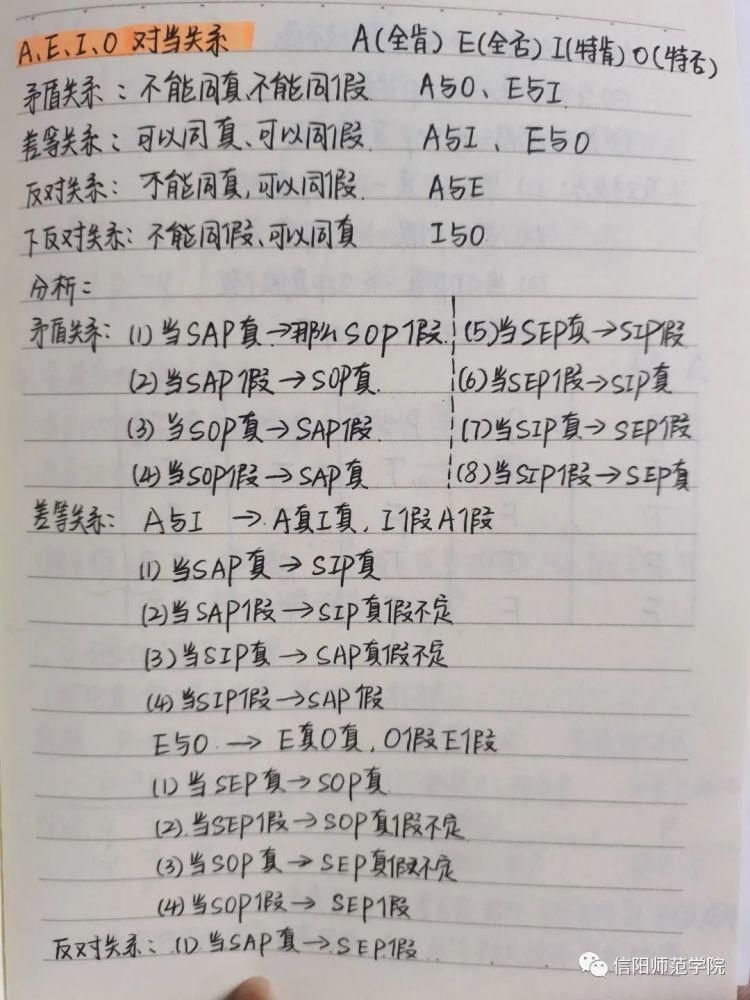 A、E、I、O 对当关系 A(全肯) E(全否) I(特肯) O(特否)
矛盾关系：不能同真、不能同假 A与O、E与I
差等关系：可以同真、可以同假 A与I、E与O
反对关系：不能同真,可以同假. A与E
下反对关系：不能同假、可以同真 I与O
分析：
矛盾关系：(1)当SAP真→那么SOP假 (5)当SEP真→SIP假
(2)当SAP假→SOP真 (6)当SEP假→SIP真
(3)当SOP真→SAP假 (7)当SIP真→SEP假
(4)当SOP假→SAP真 (8)当SIP假→SEP真
差等关系：A与I → A真I真, I假A假
(1)当SAP真→SIP真
(2)当SAP假→SIP真假不定
(3)当SIP真→SAP真假不定
(4)当SIP假→SAP假
E与O → E真O真, O假E假
(1)当SEP真→SOP真
(2)当SEP假→SOP真假不定
(3)当SOP真→SEP真假不定
(4)当SOP假→SEP假
反对关系：(1)当SAP真→SEP假
信阳师范学院